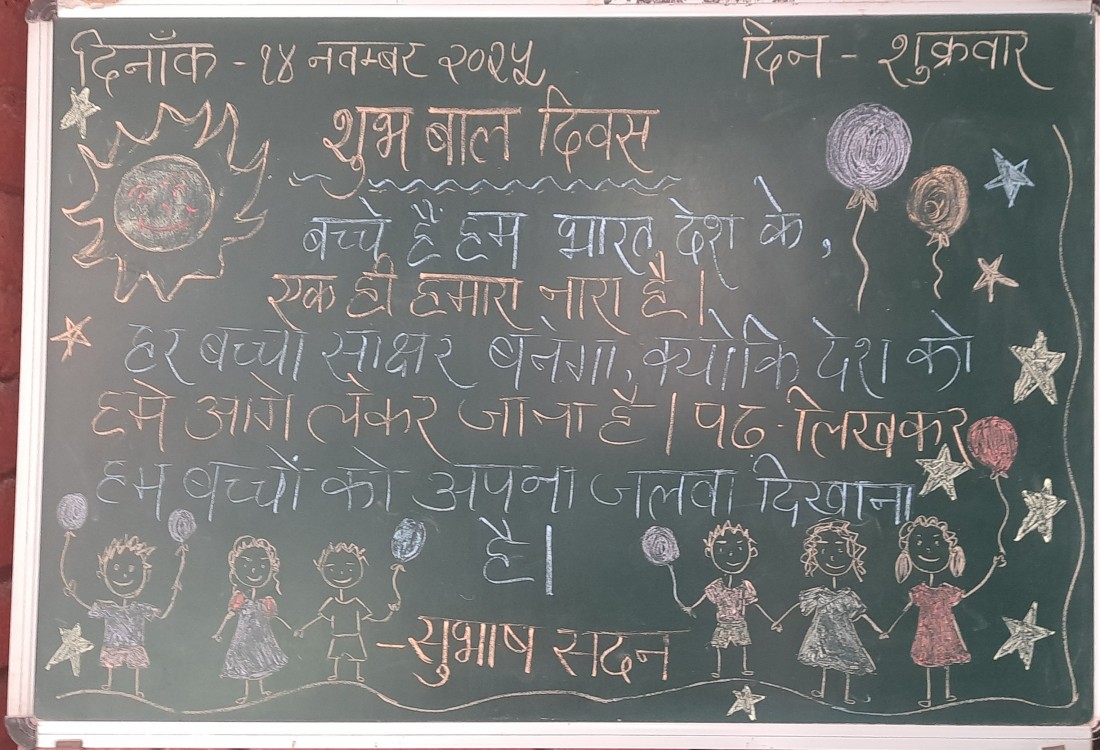 दिनाँक - १४ नवम्बर २०२५ दिन - शुक्रवार
शुभ बाल दिवस
बच्चे हैं हम भारत देश के,
एक ही हमारा नारा है।
हर बच्चा साक्षर बनेगा, क्योकि देश को
हमे आगे लेकर जाना है। पढ़-लिखकर
हम बच्चों को अपना जलवा दिखाना
है।
- सुभाष सदन